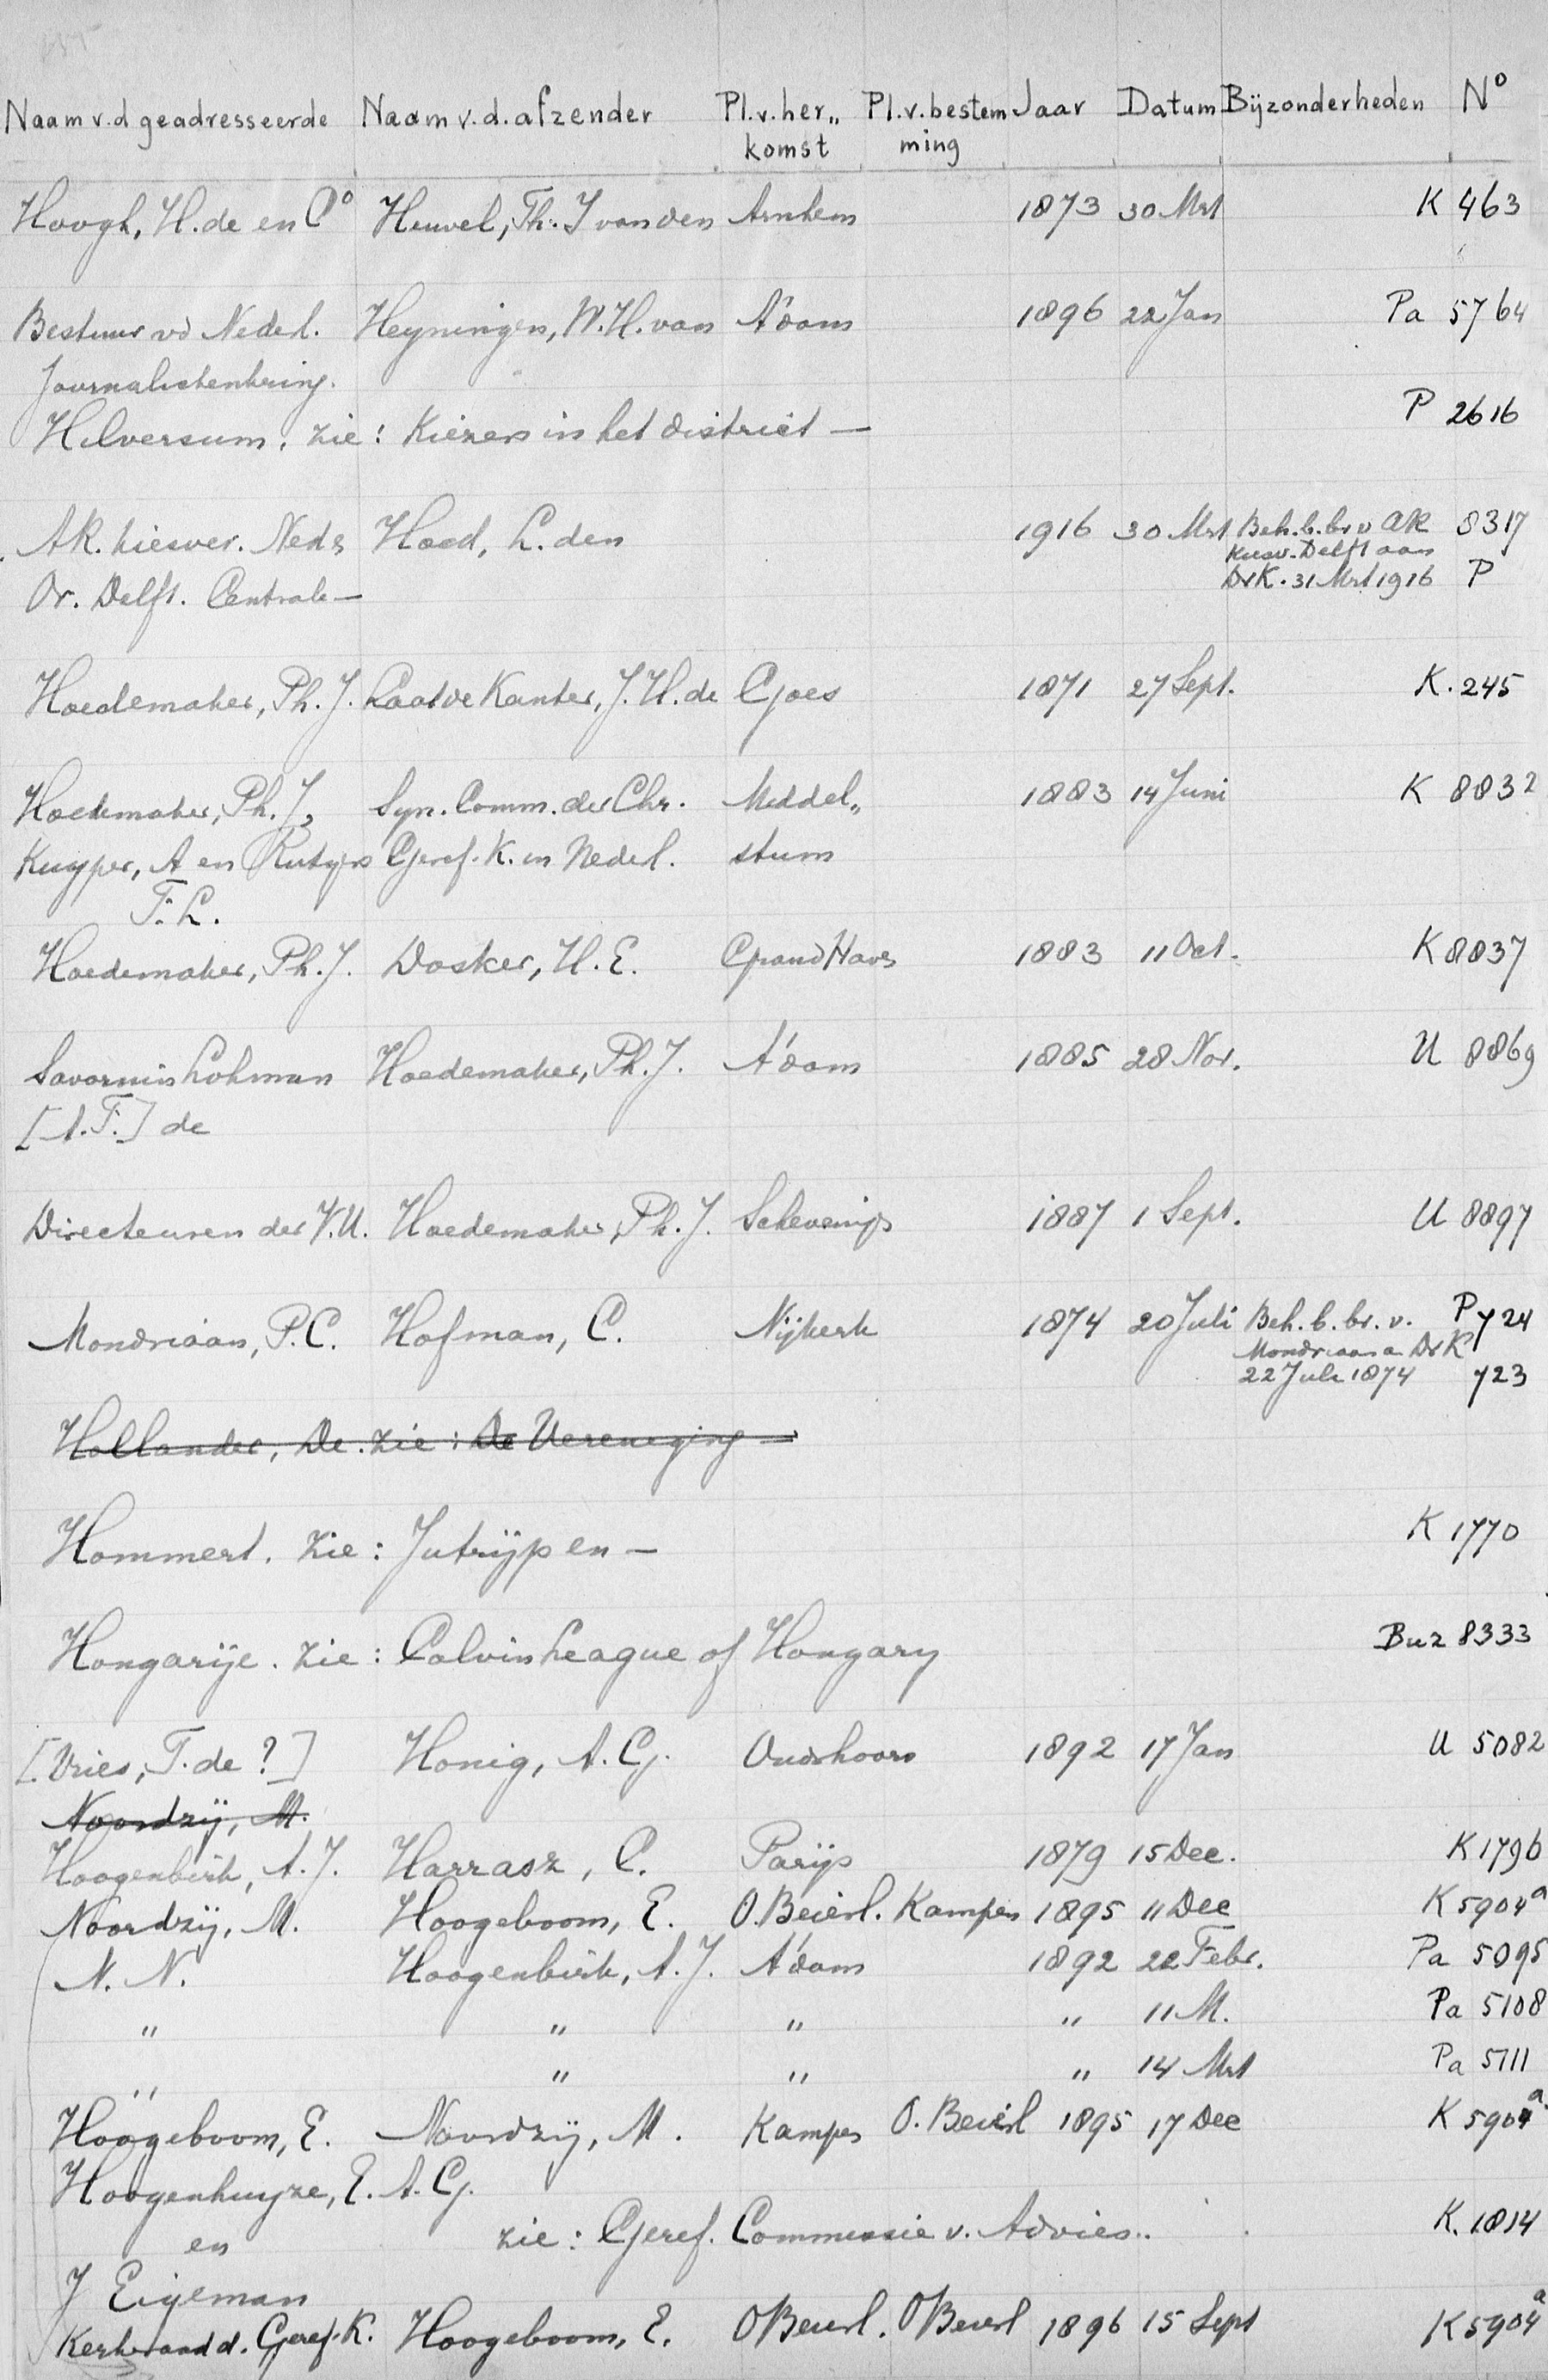 Naam v.d geadresseerde Naam v.d. afzender Pl.v.her„ Pl.v.bestem Jaar Datum Bijzonderheden Nº
komst ming
Hoogh, H. de en Cº Heuvel, Th. J van den Arnhem 1873 30 Mrt K 463
Bestuur vd Nederl. Heyningen, W.H. van A'dam 1896 22 Jan Pa 5764
Journalistenkring.
Hilversum, zie: Kiezers in het district — P 2616
AR. kiesver. Neds Hoed, L. den 1916 30 Mrt Beh. b. br v AR 8317
Kiesv. Delft aan
Or. Delft. Centrale — Dr K. 31 Mrt 1916 P
Hoedemaker, Ph. J. Laat de Kanter, J. H. de Goes 1871 27 Sept. K. 245
Hoedemaker, Ph. J, Syn. Comm. der Chr. Middel„ 1883 14 Juni K 8832
Kuyper, A en Rutgers Geref. K. in Nederl. stum
F. L.
Hoedemaker, Ph. J. Dosker, H. E. Grand Haven 1883 11 Oct. K 8837
Savornin Lohman Hoedemaker, Ph. J. A'dam 1885 28 Nov. U 8869
[A.F.] de
Directeuren der V.U. Hoedemaker, Ph. J. Schevenings 1887 1 Sept. U 8897
Mondriaan, P. C. Hofman, C. Nijkerk 1874 20 Juli Beh. b. br. v. P 724
Mondriaan a Dr K
22 Juli 1874 723
Hollander, De. zie: De Vereneging —
Hommert. zie: Jutrijp en — K 1770
Hongarije. zie: Calvin League of Hongary Buz 8333
[Vries, T. de ?] Honig, A. G. Oudshoorn 1892 17 Jan U 5082
Noordzij, M.
Hoogenbirk, A. J. Harrasz, C. Parijs 1879 15 Dec. K 1796
Noordzij, M. Hoogeboom, E. O. Beierl. Kampen 1895 11 Dec K 5904a
N. N. Hoogenbirk, A. J. A'dam 1892 22 Febr. Pa 5095
" " " " 11 M. Pa 5108
" " " " 14 Mrt Pa 5111
Hoogeboom, E. Noordzij, M. Kampen O. Beierl 1895 17 Dec K 5904a
Hoogenhuyze, E. A. G.
en zie: Geref. Commissie v. Advies. K. 1814
J Eigeman
Kerkeraad d. Geref. K. Hoogeboom, E. O Beierl. O Beierl 1896 15 Sept K 5904a